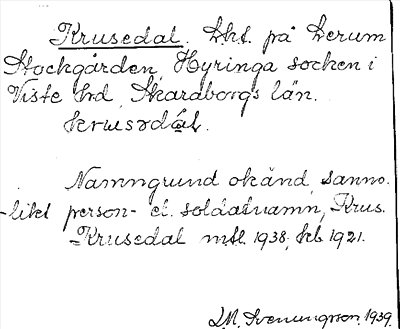 Krusedal. Lht. på Lerum
Stockgården, Hyringa socken i
Viste hd, Skaraborgs län.
krusədal.
Namngrund okänd, sanno-
likt person- el. soldatnamn, Krus.
-Krusedal mtl. 1938; kb 1921.
Svenungsson. 1939.